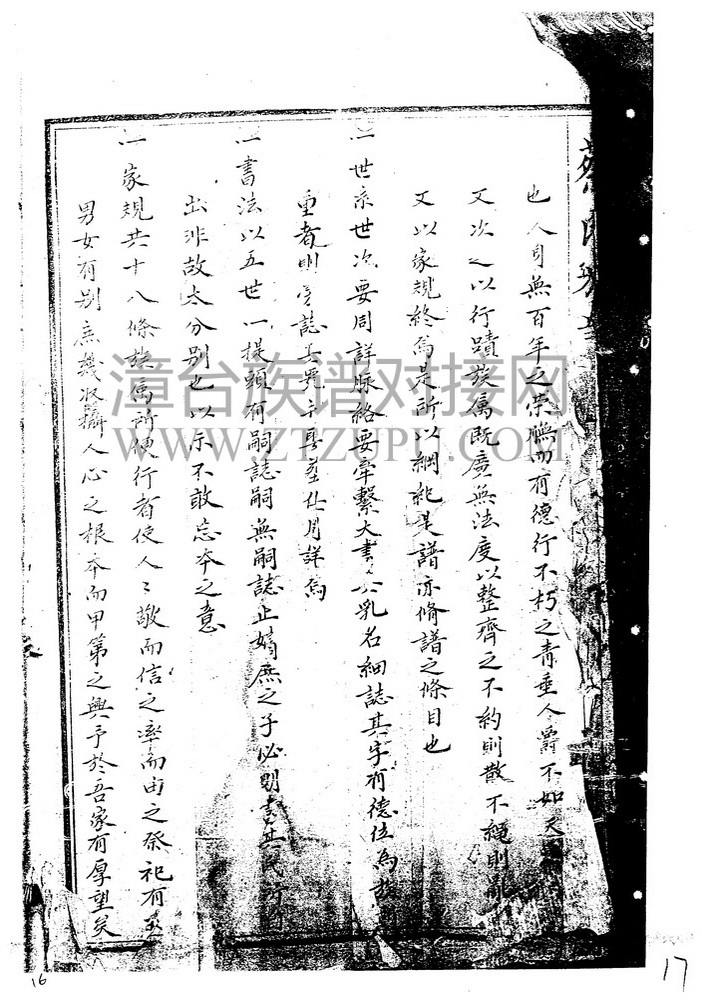 也人身無百年之榮艷而有德行不朽之青垂人爵不如天
又次之以行蹟族属既廣無法度以整齊之不約則散不繩則亂
又以家規終焉是所以綱紀是譜亦脩譜之條目也
一世系世次要周詳脉絡要牽繫大書公乳名細誌其字有德位為族
重者則旁誌其號
詳焉
一書法以五世一提頭有嗣誌嗣無嗣誌止嫡庶之子必明書其
出非故太分别也以示不敢忘本之意
一家規共十八條族属所便行者使人々敬而信之率而由之祭祀有
男女有别庶幾收攝人心之根本而甲第之興予於吾家有厚望矣
漳台族谱对接网
WWW.ZTZUPU.COM
16
17